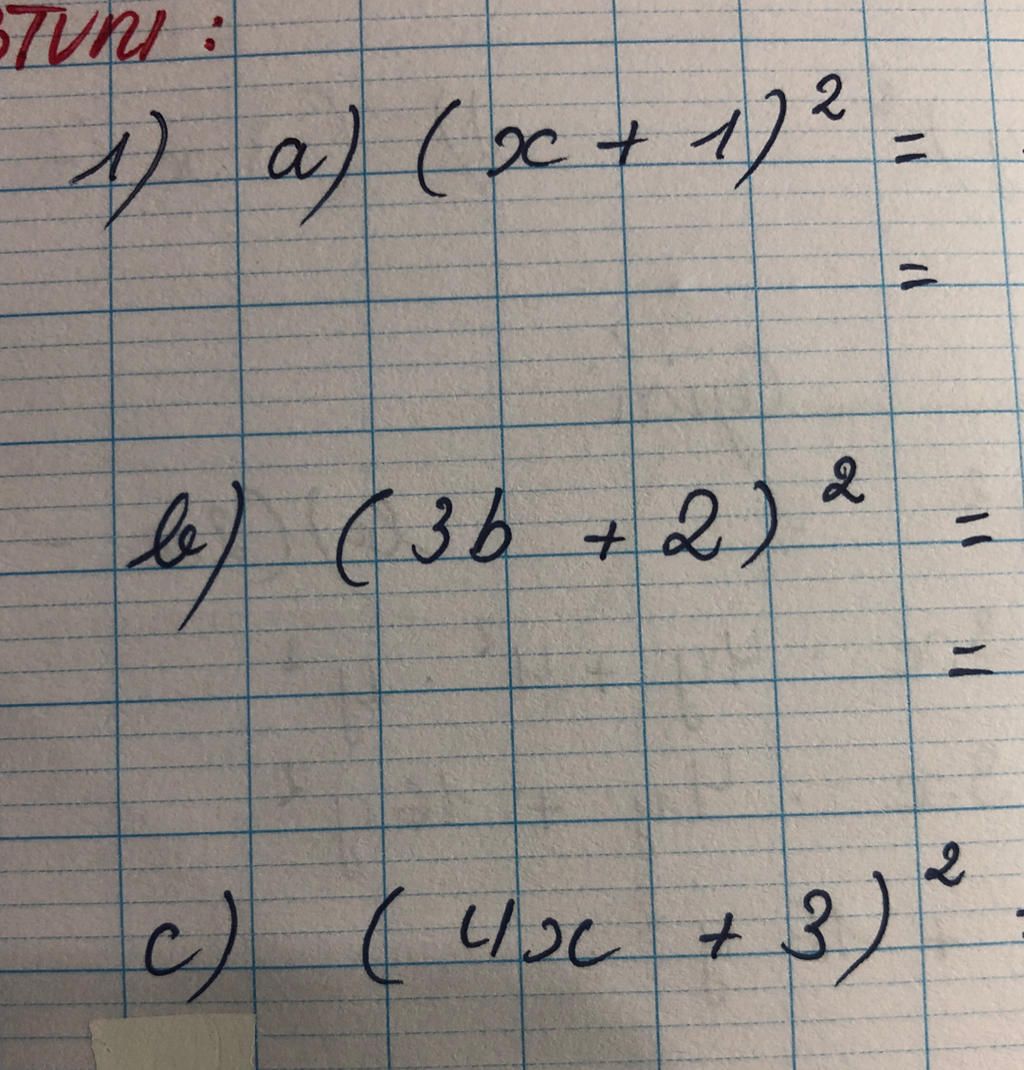 1) a) (x + 1)² =
=
b) (3b + 2)² =
=
c) (4x + 3)²